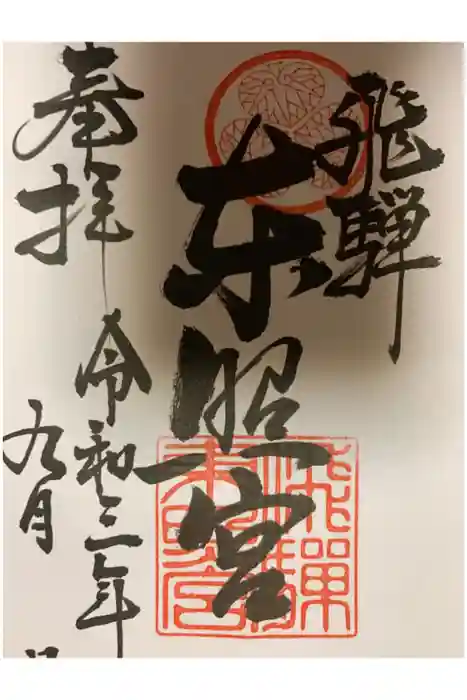 飛騨
東照宮
奉拝
令和三年
九月
飛騨東照宮